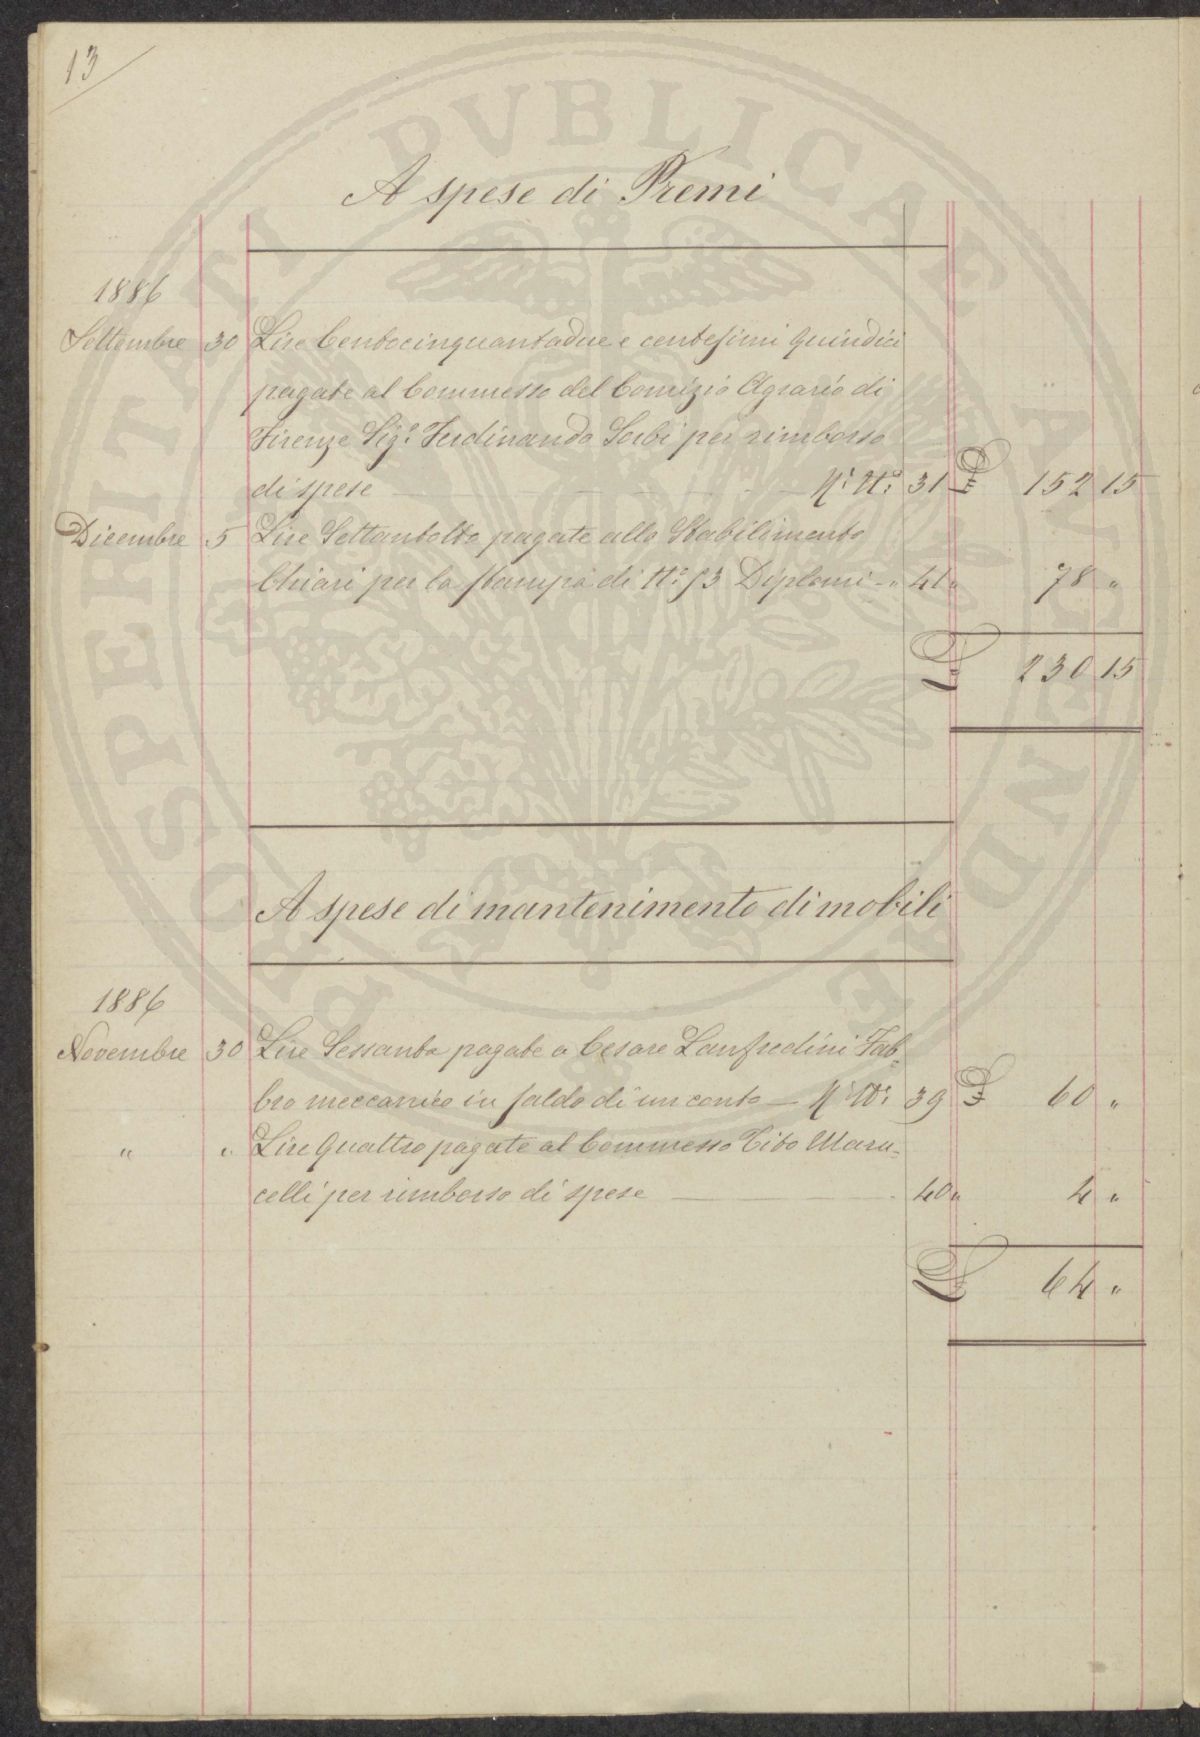 13
PROSPERITATI PVBLICAE AVGENDAE
A spese di Premi
1886
Settembre 30 Lire Centocinquantadue e centesimi Quindici
pagate al Commesso del Comizio Agrario di
Firenze Sigr. Ferdinando Sorbi per rimborso
di spese — 31 £ 152 15
Dicembre 5 Lire Settantotto pagate allo Stabilimento
Chiari per la stampa di No. 53 Diplomi - " 41 " 78 "
£ 230 15
A spese di mantenimento di mobili
1886
Novembre 30 Lire Sessanta pagate a Cesare Lanfredini Fab=
bro meccanico in saldo di un conto — 39 £ 60 "
" " Lire Quattro pagate al Commesso Tito Maru=
celli per rimborso di spese — 40 " 4 "
£ 64 "